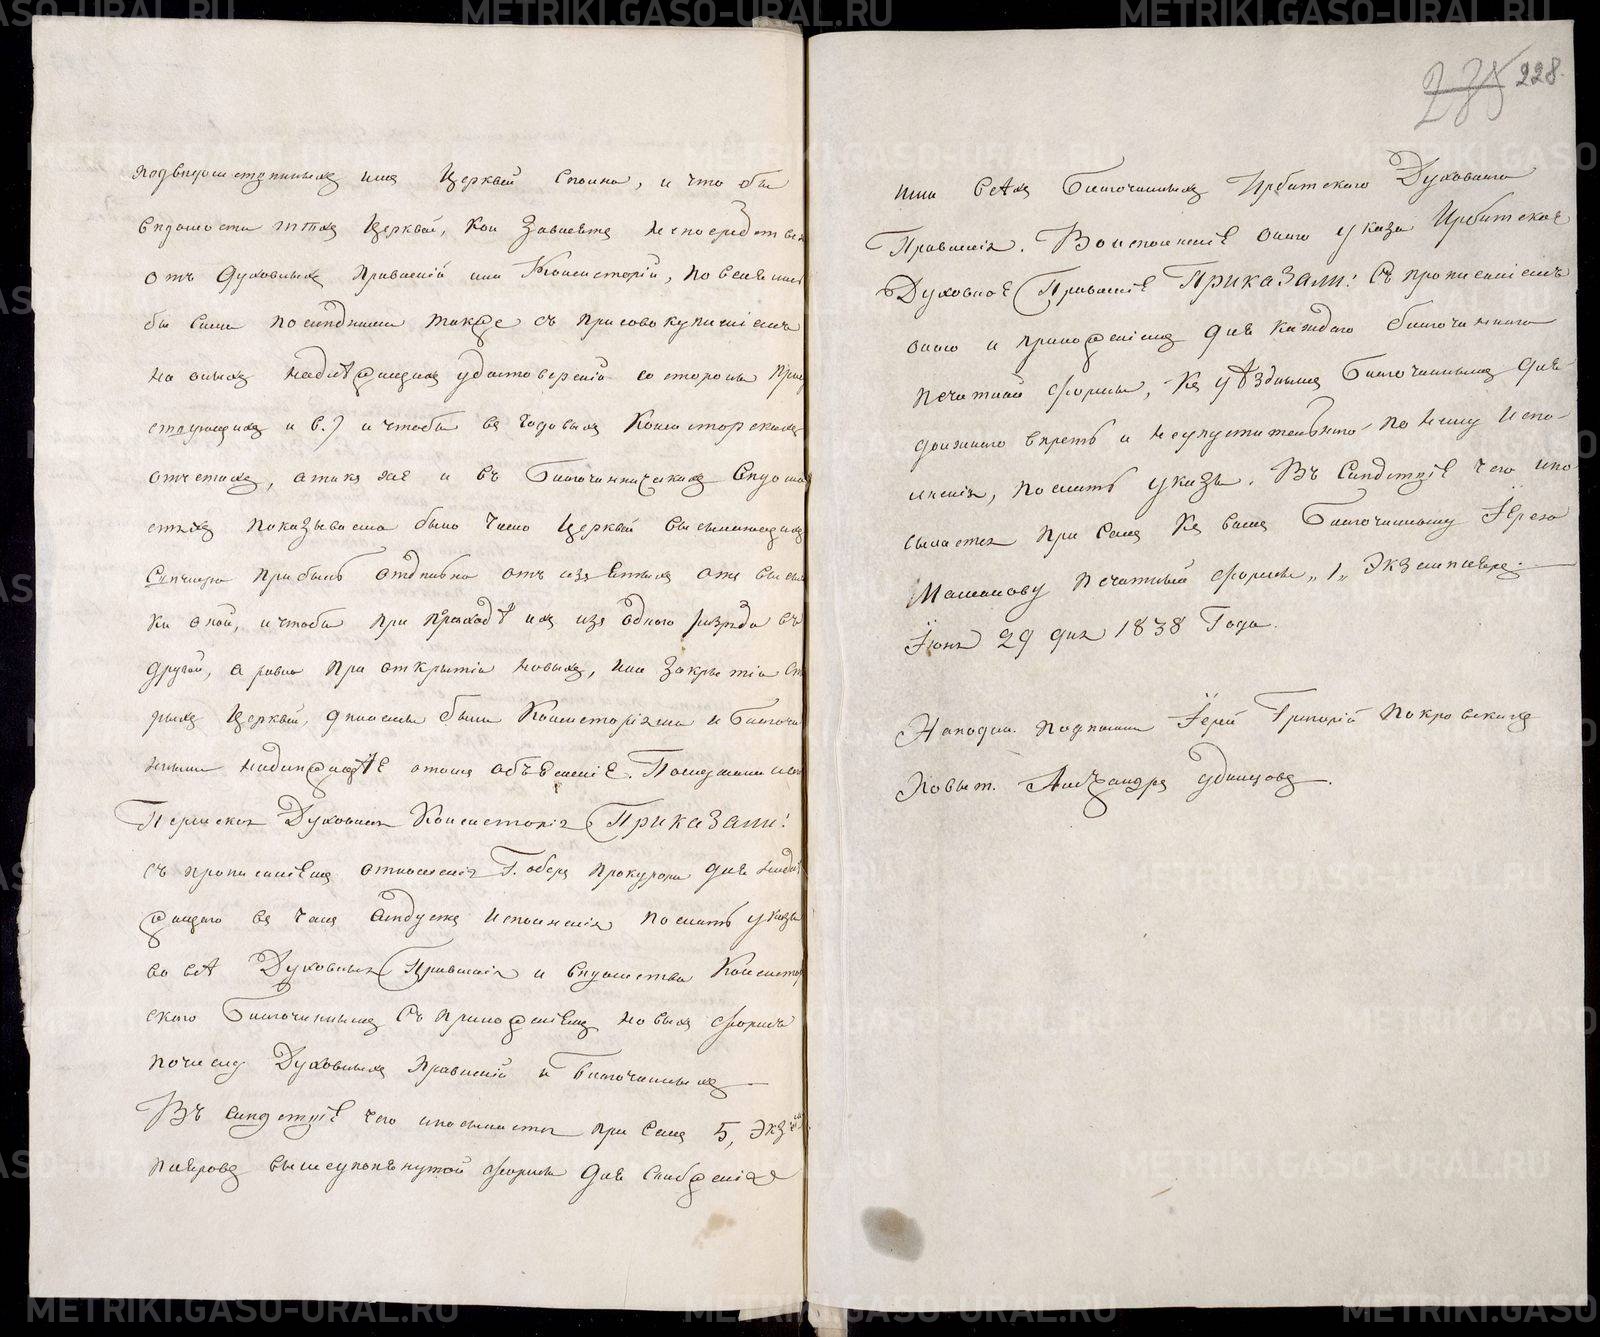 подведомственныхъ имъ Церквей Сполна, и что бы
Ведомости о техъ Церквей, кои Зависятъ непосредствен
отъ Духовныхъ Правленiй или Консисторiй, повѣряемы
бы были последними также съ присовокупленiемъ
на оныхъ надлѣжащихъ удостоверенiй со стороны Прису
ствующихъ и в.) и чтобы въ Годовыхъ Консисторскихъ
отчетахъ, а также и въ Благочинническихъ Ведомо
стяхъ показываемо было число Церквей высылающихъ
прибыль отдельно отъ изъятыхъ отъ высыл
ки оной, и чтобы при прѣходѣ ихъ изъ одного разряда въ
другой, а равно при открытiи новыхъ, или Закрытiи ста
рыхъ Церквей, делаемы были Консисторiями и Благочи
нными надлежащѣе о томъ объясненiе.
Пермская Духовная Консисторiя Приказали:
съ прописанiемъ отношенiя Г. оберъ Прокурора для надлѣ
жащаго въ чемъ следуетъ исполненiя послать указы
во всѣ Духовныя Правленiя и ведомства Консистор
скаго Благочиннымъ Съ приложенiемъ новыхъ формъ
по числу Духовныхъ Правленiй и Благочинныхъ
Въ Следствiе чего и посылается при Семъ 5, Экзем
пляровъ вышеупомянутой формы для Снабженiя
235 228.
ими всѣхъ Благочинныхъ Ирбитскаго Духовнаго
Правленiя. Во исполненiе онаго указа Ирбитское
Духовное Правленiе Приказали: Съ прописанiемъ
онаго и приложенiемъ для каждаго благочиннаго
печатной формы, Къ уѣзднымъ Благочиннымъ для
должнаго впредь и неупустительнаго по нему испо-
лненiя, послать указы. Въ Следствiе чего и по-
сылается при Семъ Къ вамъ Благочинному Iерею
Мамонову печатный формы „1„ Экземпляръ.
Iюня 29 дня 1838 Года.
На подлин. подписали Iерей Григорiй Покровскихъ
Повыт. Александръ Удинцовъ.
METRIKI.GASO-URAL.RU